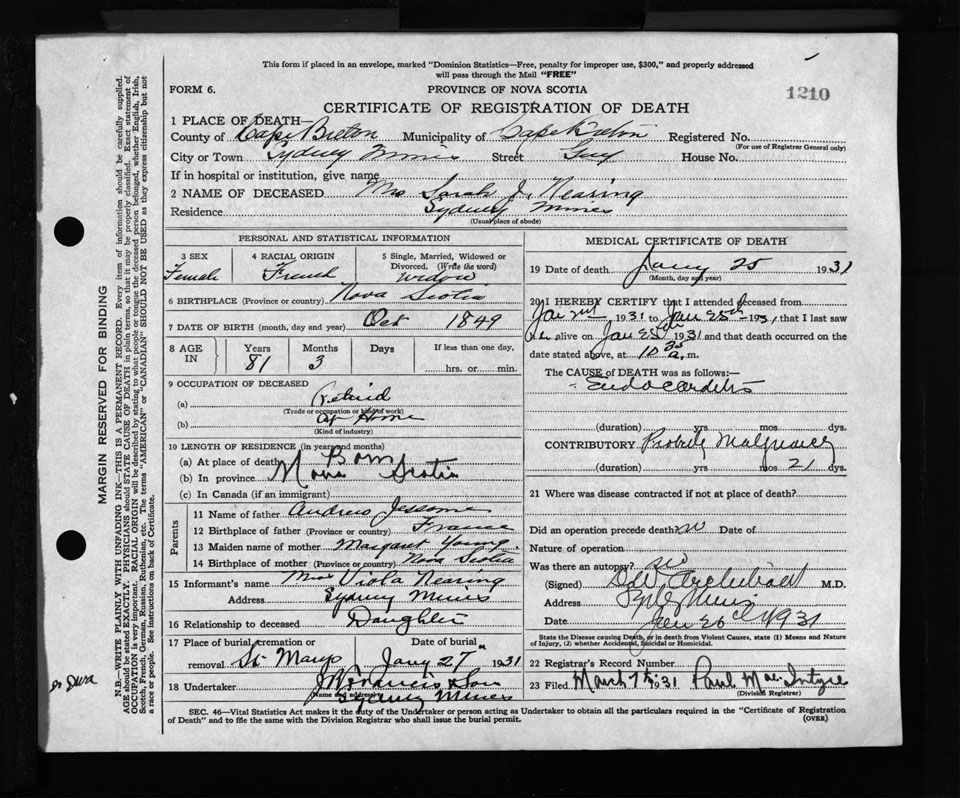 This form if placed in an envelope, marked "Dominion Statistics—Free, penalty for improper use, $300," and properly addressed
will pass through the Mail "FREE"
FORM 6.
PROVINCE OF NOVA SCOTIA
1210
CERTIFICATE OF REGISTRATION OF DEATH
1 PLACE OF DEATH—
County of Cape Breton Municipality of Cape Breton Registered No.
(For use of Registrar General only)
City or Town Sydney Mines Street Guy House No.
If in hospital or institution, give name
2 NAME OF DECEASED Mrs Sarah J. Nearing
Residence Sydney Mines
(Usual place of abode)
PERSONAL AND STATISTICAL INFORMATION
3 SEX
Female
4 RACIAL ORIGIN
French
5 Single, Married, Widowed or
Divorced. (Write the word)
widow
6 BIRTHPLACE (Province or country) Nova Scotia
7 DATE OF BIRTH (month, day and year) Oct 1849
8 AGE IN
Years Months Days If less than one day,
81 3 hrs. or min.
9 OCCUPATION OF DECEASED
(a) Retired
(Trade or occupation or kind of work)
(b) At Home
(Kind of industry)
10 LENGTH OF RESIDENCE (in years and months)
(a) At place of death Born
(b) In province Nova Scotia
(c) In Canada (if an immigrant)
Parents
11 Name of father Andrew Jessome
12 Birthplace of father (Province or country) France
13 Maiden name of mother Margaret Young
14 Birthplace of mother (Province or country) Nova Scotia
15 Informant's name Viola Nearing
Address Sydney Mines
16 Relationship to deceased Daughter
17 Place of burial, cremation or Date of burial
removal St. Marys Jany 27th 1931
18 Undertaker & Son
(Name and address) Sydney Mines
MEDICAL CERTIFICATE OF DEATH
19 Date of death Jany 25 1931
(Month, day and year)
20 I HEREBY CERTIFY that I attended deceased from
Jan 2nd 1931 to Jan 25th 1931, that I last saw
her alive on Jan 25th 1931 and that death occurred on the
date stated above, at 10 a.m.
The CAUSE of DEATH was as follows:—
Endocarditis
(duration) yrs mos dys.
CONTRIBUTORY Probably Malignancy
(duration) yrs mos 21 dys.
21 Where was disease contracted if not at place of death?
Did an operation precede death? no Date of
Nature of operation
Was there an autopsy? no
(Signed) Archibald M.D.
Address Syd. Mines
Date Jan 26th 1931
State the Disease causing Death, or in death from Violent Causes, state (1) Means and Nature
of Injury, (2) whether Accidental, Suicidal or Homicidal.
22 Registrar's Record Number
23 Filed March 7th 1931 Paul MacIntyre
(Division Registrar)
SEC. 46—Vital Statistics Act makes it the duty of the Undertaker or person acting as Undertaker to obtain all the particulars required in the "Certificate of Registration
of Death" and to file the same with the Division Registrar who shall issue the burial permit.
(OVER)
MARGIN RESERVED FOR BINDING
N.B.—WRITE PLAINLY WITH UNFADING INK—THIS IS A PERMANENT RECORD. Every item of information should be carefully supplied.
AGE should be stated EXACTLY. PHYSICIANS should STATE CAUSE OF DEATH in plain terms, so that it may be properly classified. Exact statement of
OCCUPATION is very important. RACIAL ORIGIN will be described by stating to what people or tongue the deceased person belonged, whether English, Irish,
Scotch, French, German, Russian, Ruthenian, etc. The terms "AMERICAN" or "CANADIAN" SHOULD NOT BE USED as they express citizenship but not
a race or people. See instructions on back of Certificate.